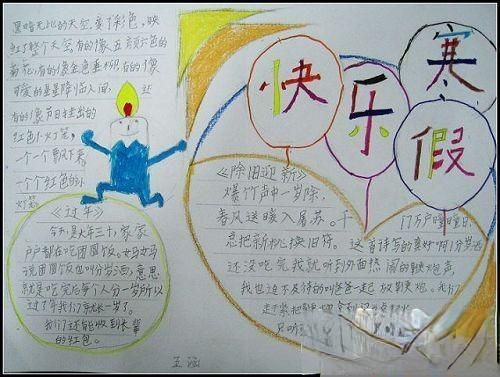 黑暗无比的天空变了彩色,映
红了整个天空。有的像五颜六色的
菊花,有的像金色垂柳,有的像
可爱的星星降临人间,还
有的像节日挂出的
红色小灯笼,
一个一个飘下来
一个个红色的小
灯笼
快乐寒假
《过年》
今天,是大年三十,家家
户户都在吃团圆饭。妈妈
说团圆饭也叫分岁酒,意思
就是吃完后每个人分一岁,所以
过了年我们就长一岁了。
我们还能收到长辈
的红包。
《除旧迎新》
爆竹声中一岁除,
春风送暖入屠苏。千
门万户曈曈日,
总把新桃换旧符。这首诗写的真好啊!分岁酒
还没吃完我就听到外面热闹的鞭炮声
我也迫不及待的叫爸爸一起放鞭炮。我们
赶紧把
只听
王涵